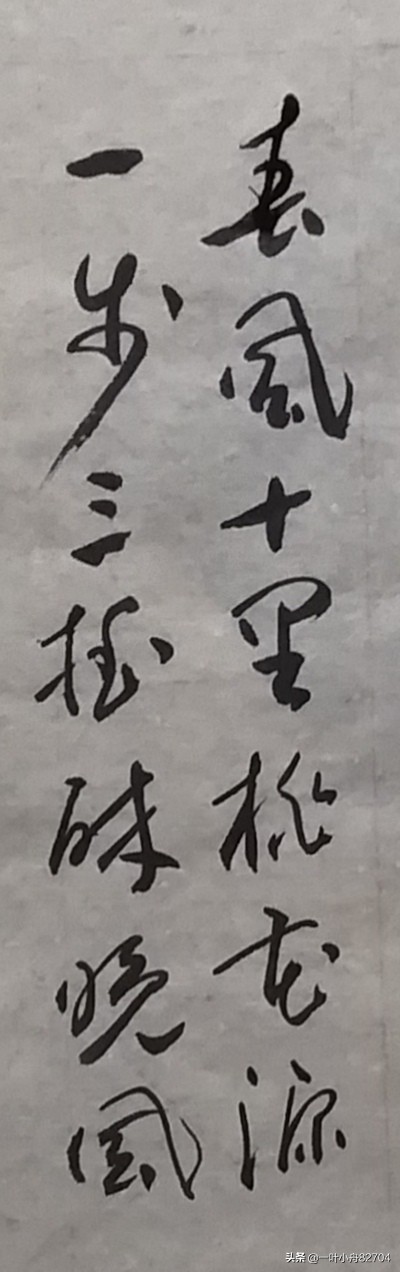 春风十里桃花源
一步三摇醉晚风
头条 @一叶小舟82704